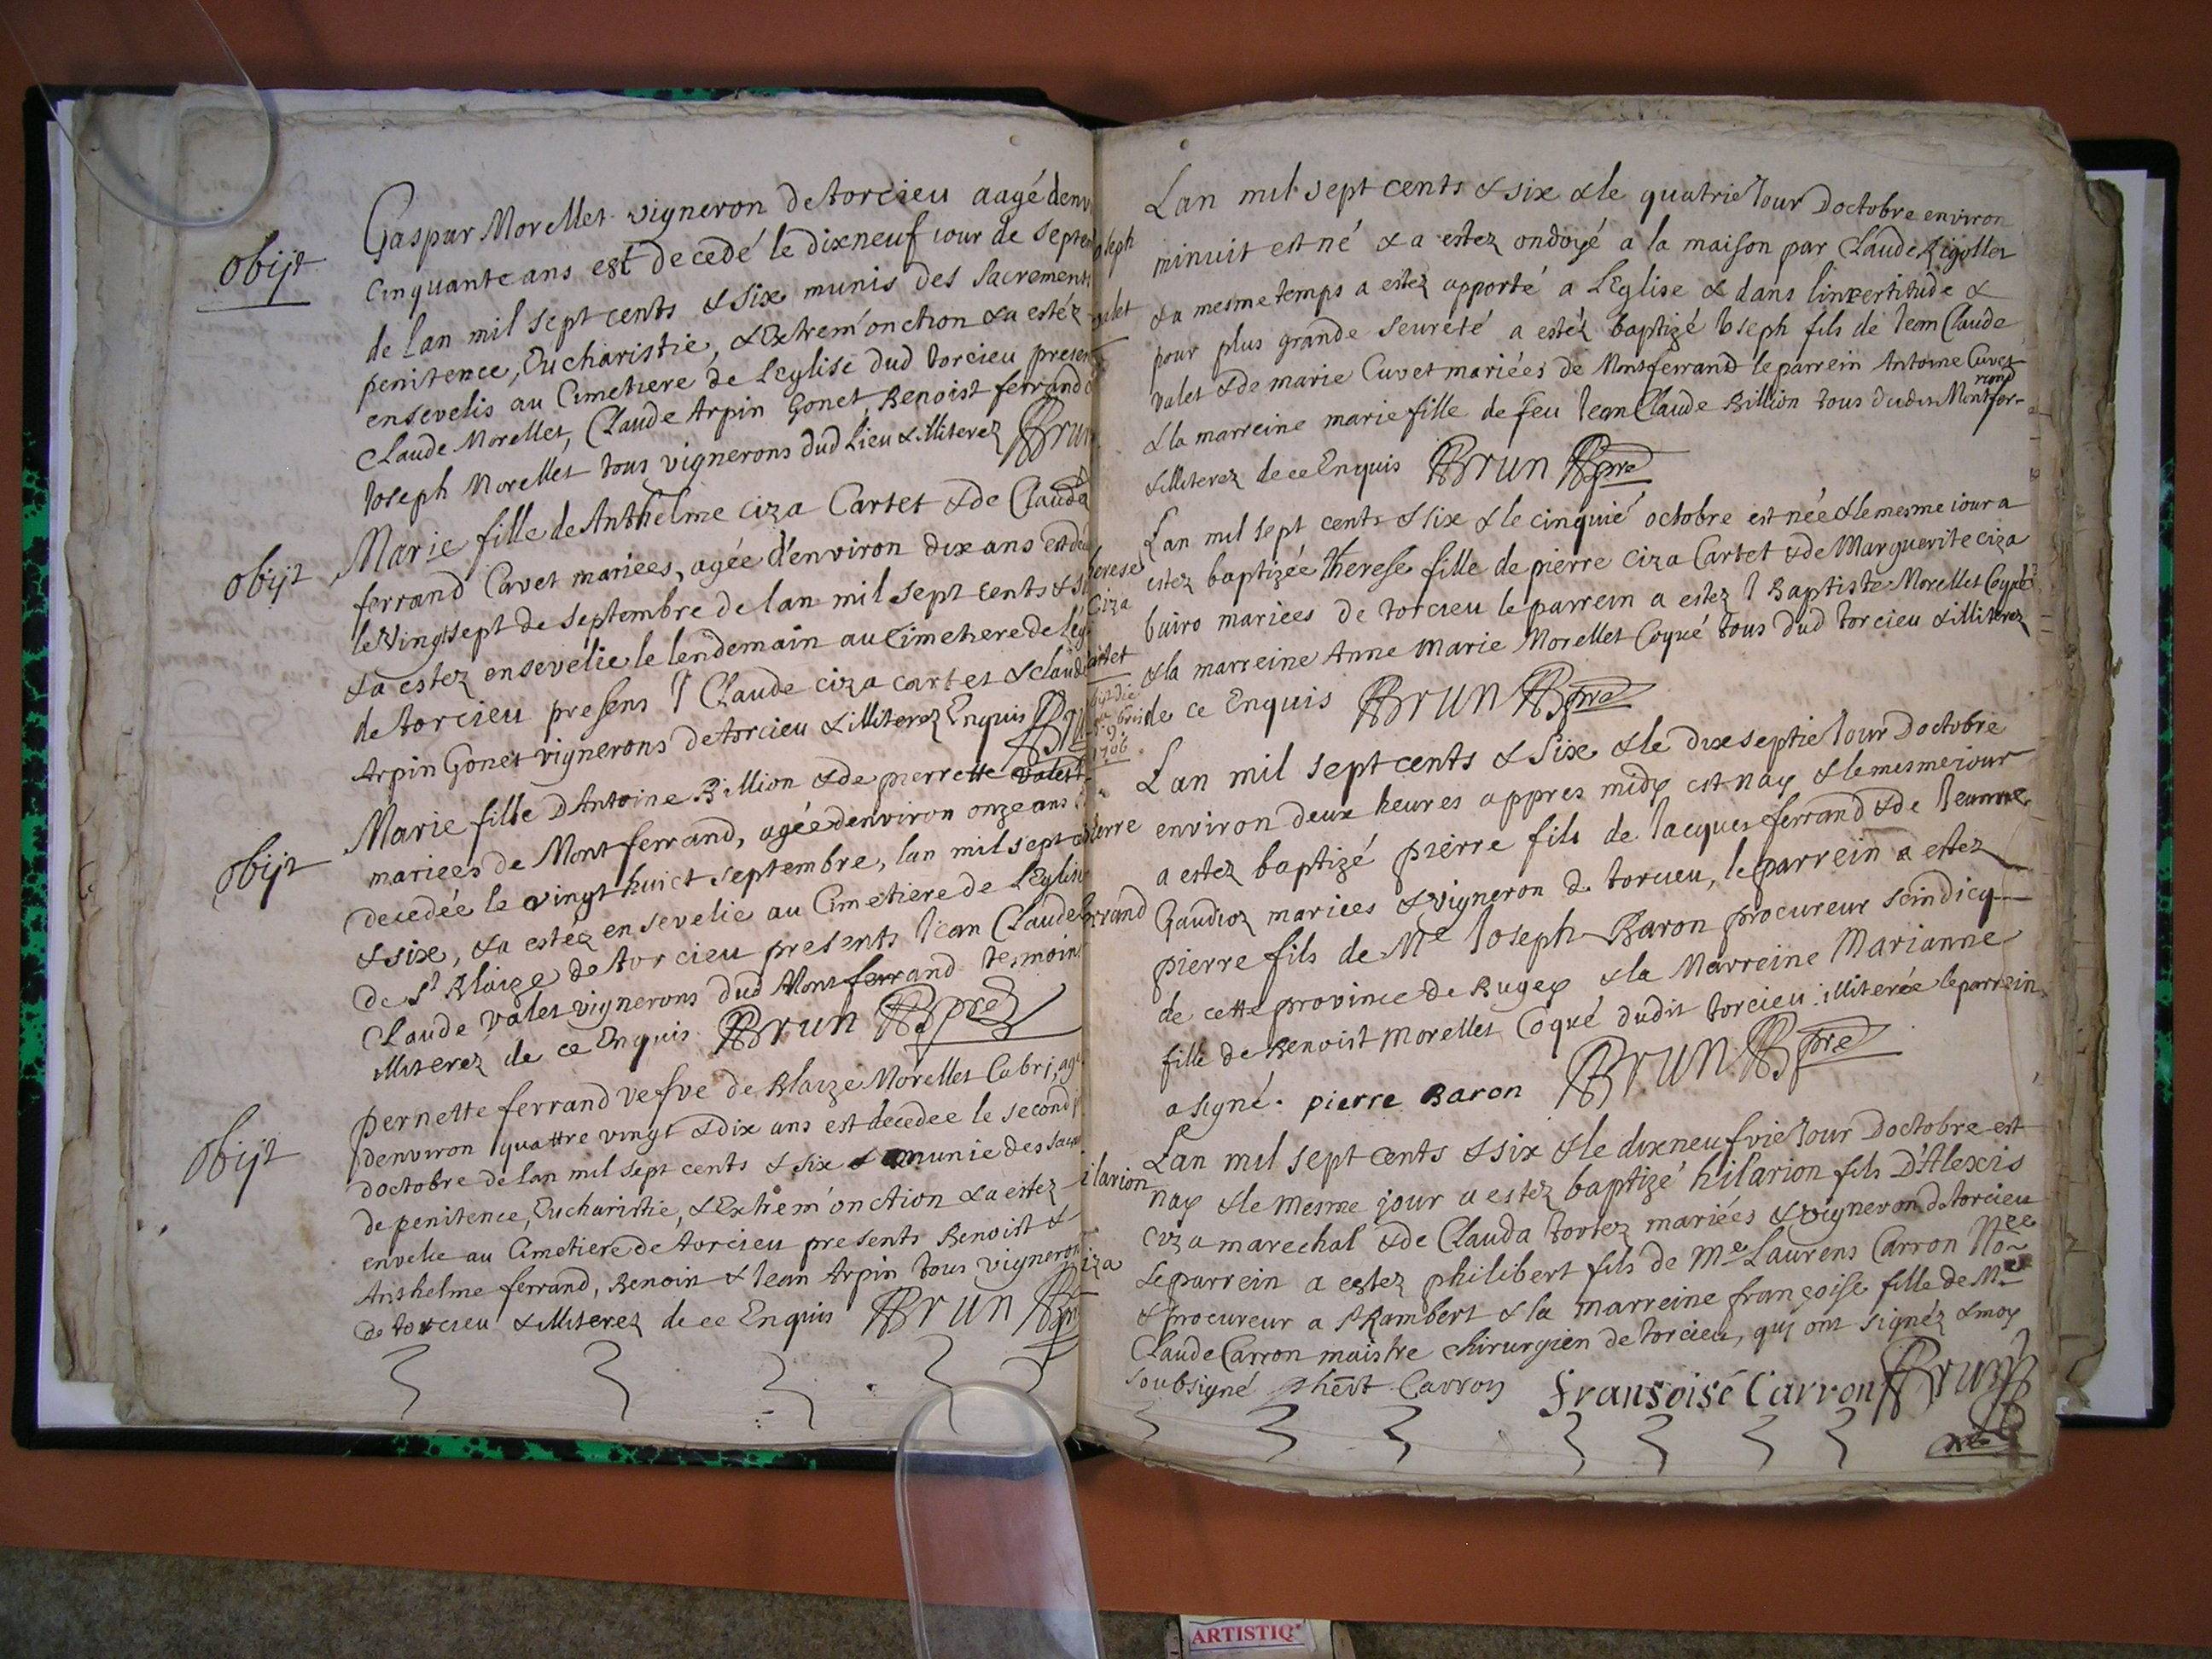 obijt
Gaspar Morellet vigneron de torcieu aagé denv
cinquante ans est decedé le dixneuf iour de septem
de lan mil sept cents & six munis des sacrements
penitence, Eucharistie, & Extrem'onction & a estéz
ensevelis au Cimetiere de Leglise dud torcieu presen
Claude Morellet, Claude Arpin Gonet, Benoist ferrand &
Ioseph Morellet tous vignerons dud Lieu & illiterez Brun
obijt
Marie fille de Anthelme ciza Cartet & de Clauda
ferrand Cavet mariees, agée d'environ dix ans est de
le vingtsept de septembre de lan mil sept cents & si
& a estez ensevelie le lendemain au Cimetiere de leg
de torcieu presens I Claude ciza cartet & claude
Arpin Gonet vignerons de torcieu & illiterez Enquis
obijt
Marie fille D'Antoine Billion & de pierrette valet
mariees de Montferrand, agée denviron onze ans
decedée le vingt huict septembre, lan mil sept ce
& six, & a estéz ensevelie au Cimetiere de L'Eglise
de St Blaize de torcieu presents Iean Claude
Claude valet vignerons dud Montferrand tesmoins
illiterez de ce Enquis Brun pre
obijt
pernette ferrand vefve de Blaize Morellet Cabri, agé
denviron quattre vingt & dix ans est decedee le second i
doctobre de lan mil sept cents & six & munie des sacr
de penitence, Eucharistie, & Extrem'onction & a estez
envelie au Cimetiere de torcieu presents Benoist &
Anthelme ferrand, Benoin & Iean Arpin tous vigneron
de torcieu & illiterez de ce Enquis Brun pre
oseph
valet
Lan mil sept cents & six & le quatrie Iour Doctobre environ
minuit est né & a estez ondoyé a la maison par Claude Rigollet
& a mesme temps a estez apporté a L'Eglise & dans lincertitude &
pour plus grande seureté a estéz baptizé Ioseph fils de Iean Claude
valet & de marie Cuvet mariéés de Montferrand le parrein Antoine Cuvet
& la marreine marie fille de feu Iean Claude Billion tous dudit Montfer-
rand
& illiterez de ce Enquis Brun pre
herese
Ciza
artet
1706
Lan mil sept cents & six & le cinquié octobre est née & le mesme iour a
estez baptizée Therese fille de pierre ciza Cartet & de Marguerite ciza
buiro mariees de torcieu le parrein a estez I Baptiste Morellet Coqué
& la marreine Anne Marie Morellet Coqué tous dud torcieu & illiterez
de ce Enquis Brun pre
ierre
errand
Lan mil sept cents & six & le dixseptie Iour Doctobre
environ deux heures appres midy est nay & le mesme iour
a estez baptizé pierre fils de Iacques ferrand & de Ieanne
Gaudioz mariees & vigneron de torcieu, le parrein a estez
pierre fils de Me Ioseph Baron procureur scindicq
de cette province de Bugey & la Marreine Marianne
fille de Benoist Morellet Coqué dudit torcieu illiterée le parrein
a signé. pierre Baron Brun pre
ilarion
iza
Lan mil sept cents & six & le dixneufvie Iour Doctobre est
nay & le mesme jour a estez baptizé hilarion fils D'Alexis
ciza marechal & de Clauda tortez mariéés & vigneron de torcieu
Le parrein a estez philibert fils de Me Laurens Carron Nore
& procureur a St Rambert & la marreine françoise fille de Me
Claude Carron maistre chirurgien de torcieu, qui ont signéz & moy
soubsigné phert Carron Fransoisé Carron Brun
pre
ARTISTIQ